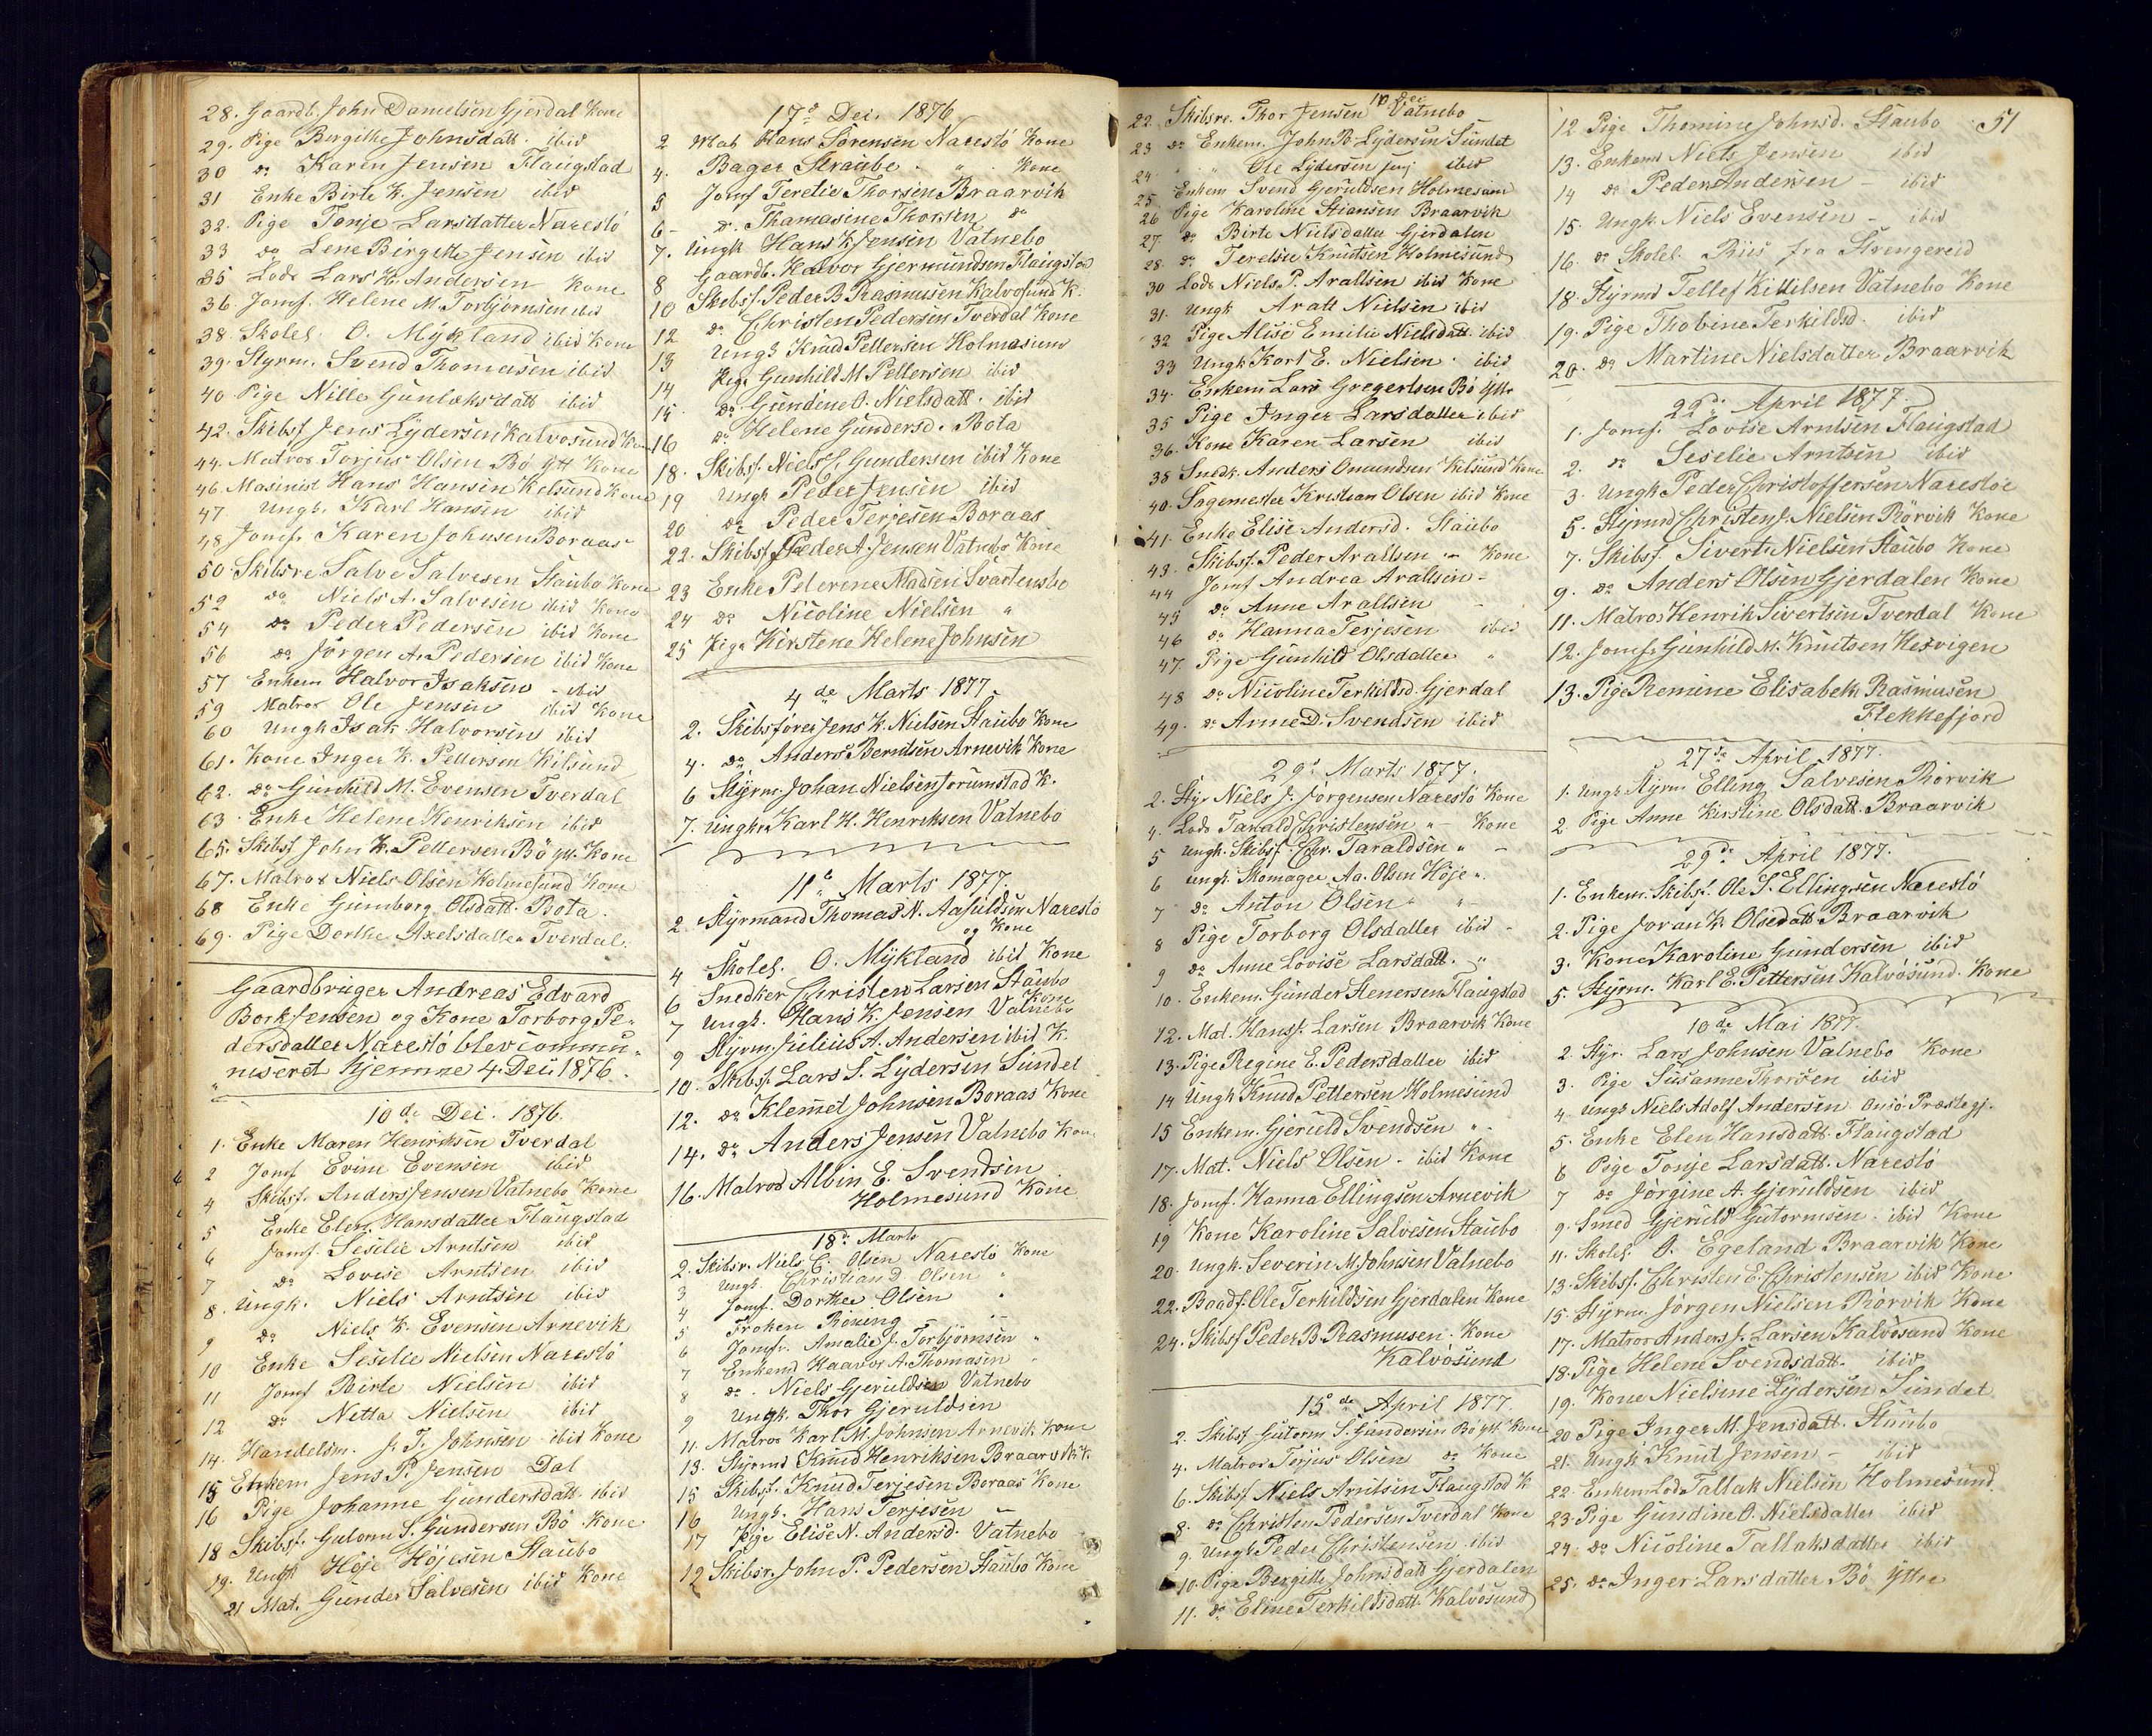 28. Gaardb. John Danielsen Gjerdal Kone
29. Pige Birgithe Johnsdatt. ibid
30 do Karen Jensen Flaugstad
31 Enke Birte K. Jensen ibid
32. Pige Tonje Larsdatter Narestö
33 do Lene Birgitte Jensen ibid
35 Lods Lars H. Andersen Kone
36. Jomf. Helene M. Torbjörnsen ibid
38. Skolel. O. Mykland ibid Kone
39. Styrm. Svend Thomasen ibid
40 Pige Nille Gunlaksdatt ibid
42. Skibsf Jens Lydersen Kalvösund Kone
44. Matros Torjus Olsen Bö ytt Kone
46. Masinist Hans Hansen Kilsund Kone
47. Ungk. Karl Hansen ibid
48 Jomfr Karen Johnsen Boraas
50 Skibsre. Salve Salvesen Staubo Kone
52 do Niels A. Salvesen ibid Kone
54 do Peder Pedersen ibid Kone
56 do Jörgen A. Pedersen ibid Kone
57 Enkem Halvor Isaksen - ibid
59 Matros Ole Jensen ibid Kone
60 Ungk Isak Halvorsen ibid
61. Kone Inger K. Pettersen Kilsund
62. do Gunhild M. Evensen Tverdal
63. Enke Helene Henriksen ibid
65. Skibsf John K. Pettersen Bö ytt. Kone
67. Matros Niels Olsen Holmesund Kone
68 Enke Gunborg Olsdatt. Bota.
69. Pige Dorthe Axelsdatter Tverdal.
Gaardbruger Andreas Edvard
Bork Jensen og Kone Torborg Pe-
dersdatter Narestö blev commu-
niseret hjemme 4. Dec. 1876.
10de Dec. 1876.
1. Enke Maren Henriksen Tverdal
2 Jomf Evine Evensen ibid
4 Skibsf. Anders Jensen Vatnebo Kone
5 Enke Elen Hansdatter Flaugstad
6 Jomf. Seselie Arntsen ibid
7 do Lovise Arntsen ibid
8. Ungk. Niels Arntsen ibid
9 do Niels K. Evensen Arnevik
10 Enke Seselie Nielsen Narestö
11 Jomf Birte Nielsen ibid
12 do Netta Nielsen ibid
14. Handelsm. J. T. Johnsen ibid Kone
15 Enkem Jens P. Jensen Dal
16 Pige Johanne Gundersdatt ibid
18 Skibsf. Gutorm S. Gundersen Bö Kone
19. Ungk Höje Höjesen Staubo
21 Mat. Gunder Salvesen ibid Kone
17de Dec. 1876
2 Mat Hans Sörensen Narestö Kone
4. Bager Straube " Kone
5 Jomf Teretie Thorsen Braarvik
6- do Thomasine Thorsen do
7. Ungk Hans K. Jensen Vatnebo
8 Gaardb. Halvor Gjermundsen Flaugstad
10 Skibsf. Peder B. Rasmusen Kalvösund K.
12 do Christen Pedersen Tverdal Kone
13 Ungk Knud Pettersen Holmesund
14 Pige Gunhild M. Pettersen ibid
15. do Gundine O. Nielsdatt. ibid
16 do Helene Gundersd. Bota
18. Skibsf. Niels J. Gundersen ibid Kone
19 Ungk Peder Jensen ibid
20 do Peder Terjesen Boraas
22. Skibsf Peder A. Jensen Vatnebo Kone
23 Enke Peterene Madsen Svartensbo
24 do Nicoline Nielsen "
25 Pige Kirstene Helene Johnsen
4de Marts 1877
2. Skibsförer Jens K. Nielsen Staubo Kone
4. do Anders Berntsen Arnevik Kone
6 Styrm. Johan Nielsen Jorumstad K.
7. Ungk. Karl H. Henriksen Vatnebo
11te Marts 1877.
2. Styrmand Thomas N. Aasuldsen Narestö
og Kone
4 Skolel. O. Mykland ibid Kone
6 Snedker Christen Larsen Staubo
Kone
7 Ungk. Hans K. Jensen Vatnebo
9 Styrm. Julius A. Andersen ibid K.
10. Skibsf. Lars S. Lydersen Sundet
12. do Klemet Johnsen Boraas Kone
14. do Anders Jensen Vatnebo Kone
16. Matros Albin E. Svendsen
Holmesund Kone
18de Marts
2. Skibsr. Niels C. Olsen Narestö Kone
3 Ungk. Christian D Olsen "
4 Jomf. Dorthee Olsen "
5 Fröken Röning - -
6 Jomfr. Amalie J. Torbjörnsen "
7 Enkemd Haavor A. Thomasen "
8 do. Niels Gjeruldsen Vatnebo
9 Ungk. Thor Gjeruldsen
11. Matros Karl M. Johnsen Arnevik Kone
13. Styrmd Knud Henriksen Braarvik K.
15 Skibsf. Knud Terjesen Boraas Kone
16 Ungk. Hans Terjesen -
17 Pige Elise N. Andersd. Vatnebo
19 Skibsr. John P. Pedersen Staubo Kone
10 Dec
22. Skibsre. Thor Jensen Vatnebo
23 do Enkem. John B. Lydersen Sundet
24 " " Ole Lydersen junj ibid
25 Enkem Svend Gjeruldsen Holmesund
26 Pige Karoline Stiansen Braarvik
27. do Birte Nielsdatter Gjerdalen
28. do Terelsie Knutsen Holmesund
30 Lods Niels P. Araltsen ibid Kone
31. Ungk Aralt Nielsen ibid
32 Pige Alise Emilie Nielsdatt ibid
33 Ungk Karl E. Nielsen. ibid
34. Enkem Lars Gregertsen Bö Ytre
35 Pige Inger Larsdatter ibid
36. Kone Karen Larsen ibid
38 Snedk. Anders Omundsen Kilsund Kone
40. Sagemester Kristian Olsen ibid Kone
41. Enke Elise Andersd. Staubo
43. Skibsf. Peder Araltsen - Kone
44 Jomf Andrea Araltsen -
45 do Anne Araltsen -
46 do Hanna Terjesen ibid
47. Pige Gunhild Olsdatter "
48 do Nicoline Terkildsd. Gjerdal
49. do Anne D. Svendsen ibid
29de Marts 1877.
2. Styr Niels J. Jörgensen Narestö Kone
4. Lods Tarald Christensen " Kone
5 Ungk. Skibsf. Chr. Taraldsen " -
6 Ungk. Skomager Aa. Olsen Höje ".
7 do Anton Olsen " "
8 Pige Torborg Olsdatter ibid -
9 do Anne Lovise Larsdatt. "
10. Enkem. Gunder Stenersen Flaugstad
12. Mat. Hans J. Larsen Braarvik Kone
13. Pige Regine E. Pedersdatter ibid
14 Ungk Knud Pettersen Holmesund
15 Enkem. Gjeruld Svendsen ".
17. Mat. Niels Olsen - ibid Kone
18. Jomf. Hanna Ellingsen Arnevik
19 Kone Karoline Salvesen Staubo
20. Ungk. Severin M. Johnsen Vatnebo
22. Baadsf. Ole Terkildsen Gjerdalen Kone
24. Skibsf Peder B. Rasmusen. Kone
Kalvösund
15de April 1877.
2. Skibsf Gutorm S. Gundersen Bö ytt Kone
4. Matros Terjus Olsen do Kone
6. Skibsf Niels Arntsen Flaugstad K
8. do Christen Pedersen Tverdal Kone
9. Ungk Peder Christensen ibid
10. Pige Bergitte Johnsdatt Gjerdalen
11. do Eline Terkildsdatt. Kalvösund
51
12. Pige Thomine Johnsd. Staubo
13. Enkemd Niels Jensen ibid
14 do Peder Andersen - ibid
15. Ungk. Niels Evensen - ibid
16. do Skolel. Riis fra Strengereid
18. Styrmd Tellef Kittilsen Vatnebo Kone
19. Pige Thobine Terkildsd. ibid
20. do Martine Nielsdatter Braarvik
22de April 1877.
1. Jomf. Lovise Arntsen Flaugstad
2. do Seselie Arntsen ibid
3. Ungk Peder Christoffersen Narestöe
5. Styrmd Christen J. Nielsen Rörvik Kone
7. Skibsf. Sivert Nielsen Staubo Kone
9. do Anders Olsen Gjerdalen Kone
11. Matros Henrik Sivertsen Tverdal Kone
12. Jomfr Gunhild M. Knutsen Hesvigen
13. Pige Remine Elisabeth Rasmusen
Flekkefjord
27de April 1877.
1. Ungk Styrm Elling Salvesen Rörvik
2. Pige Anne Kirstine Olsdatt. Braarvik
29de April 1877.
1. Enkem. Skibsf. Ole S. Ellingsen Narestö
2. Pige Joran K. Olsedatt Braarvik
3. Kone Karoline Gundersen ibid
5. Styrm. Karl E. Pettersen Kalvösund. Kone
10de Mai 1877.
2. Styr. Lars Johnsen Vatnebo Kone
3. Pige Susanne Thorsen ibid
4. Ungk Niels Adolf Andersen Præstegj.
5. Enke Elen Hansdatt. Flaugstad
6 Pige Tonje Larsdatt. Narestö
7 do Jörgine A. Gjeruldsen ibid
9. Smed Gjeruld Gutormsen. ibid Kone
11. Skolel. O. Egeland Braarvik Kone
13. Skibsf. Christen E. Christensen ibid Kone
15. Styrm. Jörgen Nielsen Rörvik Kone
17. Matros Anders J. Larsen Kalvösund Kone
18. Pige Helene Svendsdatt. ibid
19. Kone Nielsine Lydersen Sundet
20 Pige Inger M. Jensdatt. Staubo
21. Ungk Knut Jensen - ibid
22. Enkem Lods Tallak Nielsen Holmesund
23. Pige Gundine O. Nielsdatter ibid
24. do Nicoline Tallaksdatter ibid
25. do Inger Larsdatter Bö Yttre